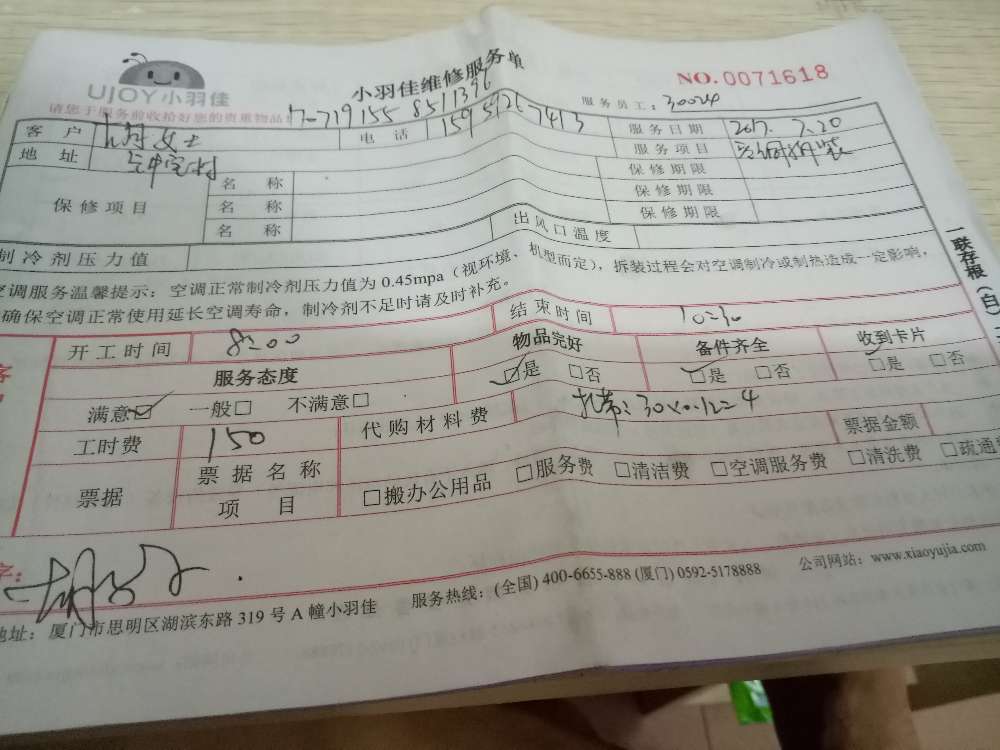 UJOY小羽佳
小羽佳维修服务单
NO.0071618
请您于服务前收拾好您的贵重物品
服务员工：30024
客户 女士 电话 服务日期 2017.7.20
地址 服务项目
保修项目 名称 保修期限
名称 保修期限
名称 保修期限
制冷剂压力值 出风口温度
空调服务温馨提示：空调正常制冷剂压力值为0.45mpa（视环境、机型而定），拆装过程会对空调制冷或制热造成一定影响，
确保空调正常使用延长空调寿命，制冷剂不足时请及时补充。
一联存根（白）
开工时间 8:00 结束时间 10:30
服务态度 物品完好 备件齐全 收到卡片
满意☑ 一般□ 不满意□ ☑是 □否 ☑是 □否 ☑是 □否
工时费 150 代购材料费 扎带：30×0.12=4 票据金额
票据 票据名称 □搬办公用品 □服务费 □清洁费 □空调服务费 □清洗费 □疏通
项目
字：
地址：厦门市思明区湖滨东路319号A幢小羽佳 服务热线：(全国) 400-6655-888 (厦门) 0592-5178888 公司网站：www.xiaoyujia.com